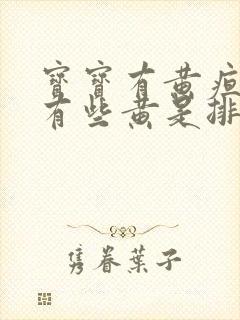 寶寶有黃疸
有些黃是排
雋眷葉子